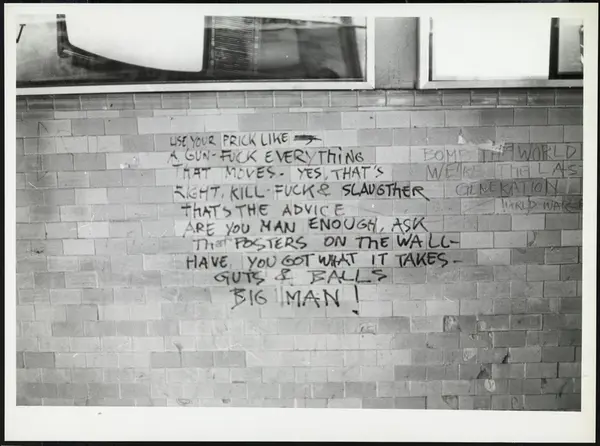 USE YOUR PRICK LIKE
A GUN-FUCK EVERYTHING
THAT MOVES- YES, THAT'S
RIGHT, KILL-FUCK & SLAUGTHER
THATS THE ADVICE
ARE YOU MAN ENOUGH, ASK
THAT POSTERS ON THE WALL-
HAVE YOU GOT WHAT IT TAKES-
GUTS & BALLS
BIG MAN!
BOMB THE WORLD
WE'RE THE LAS
GENERATION